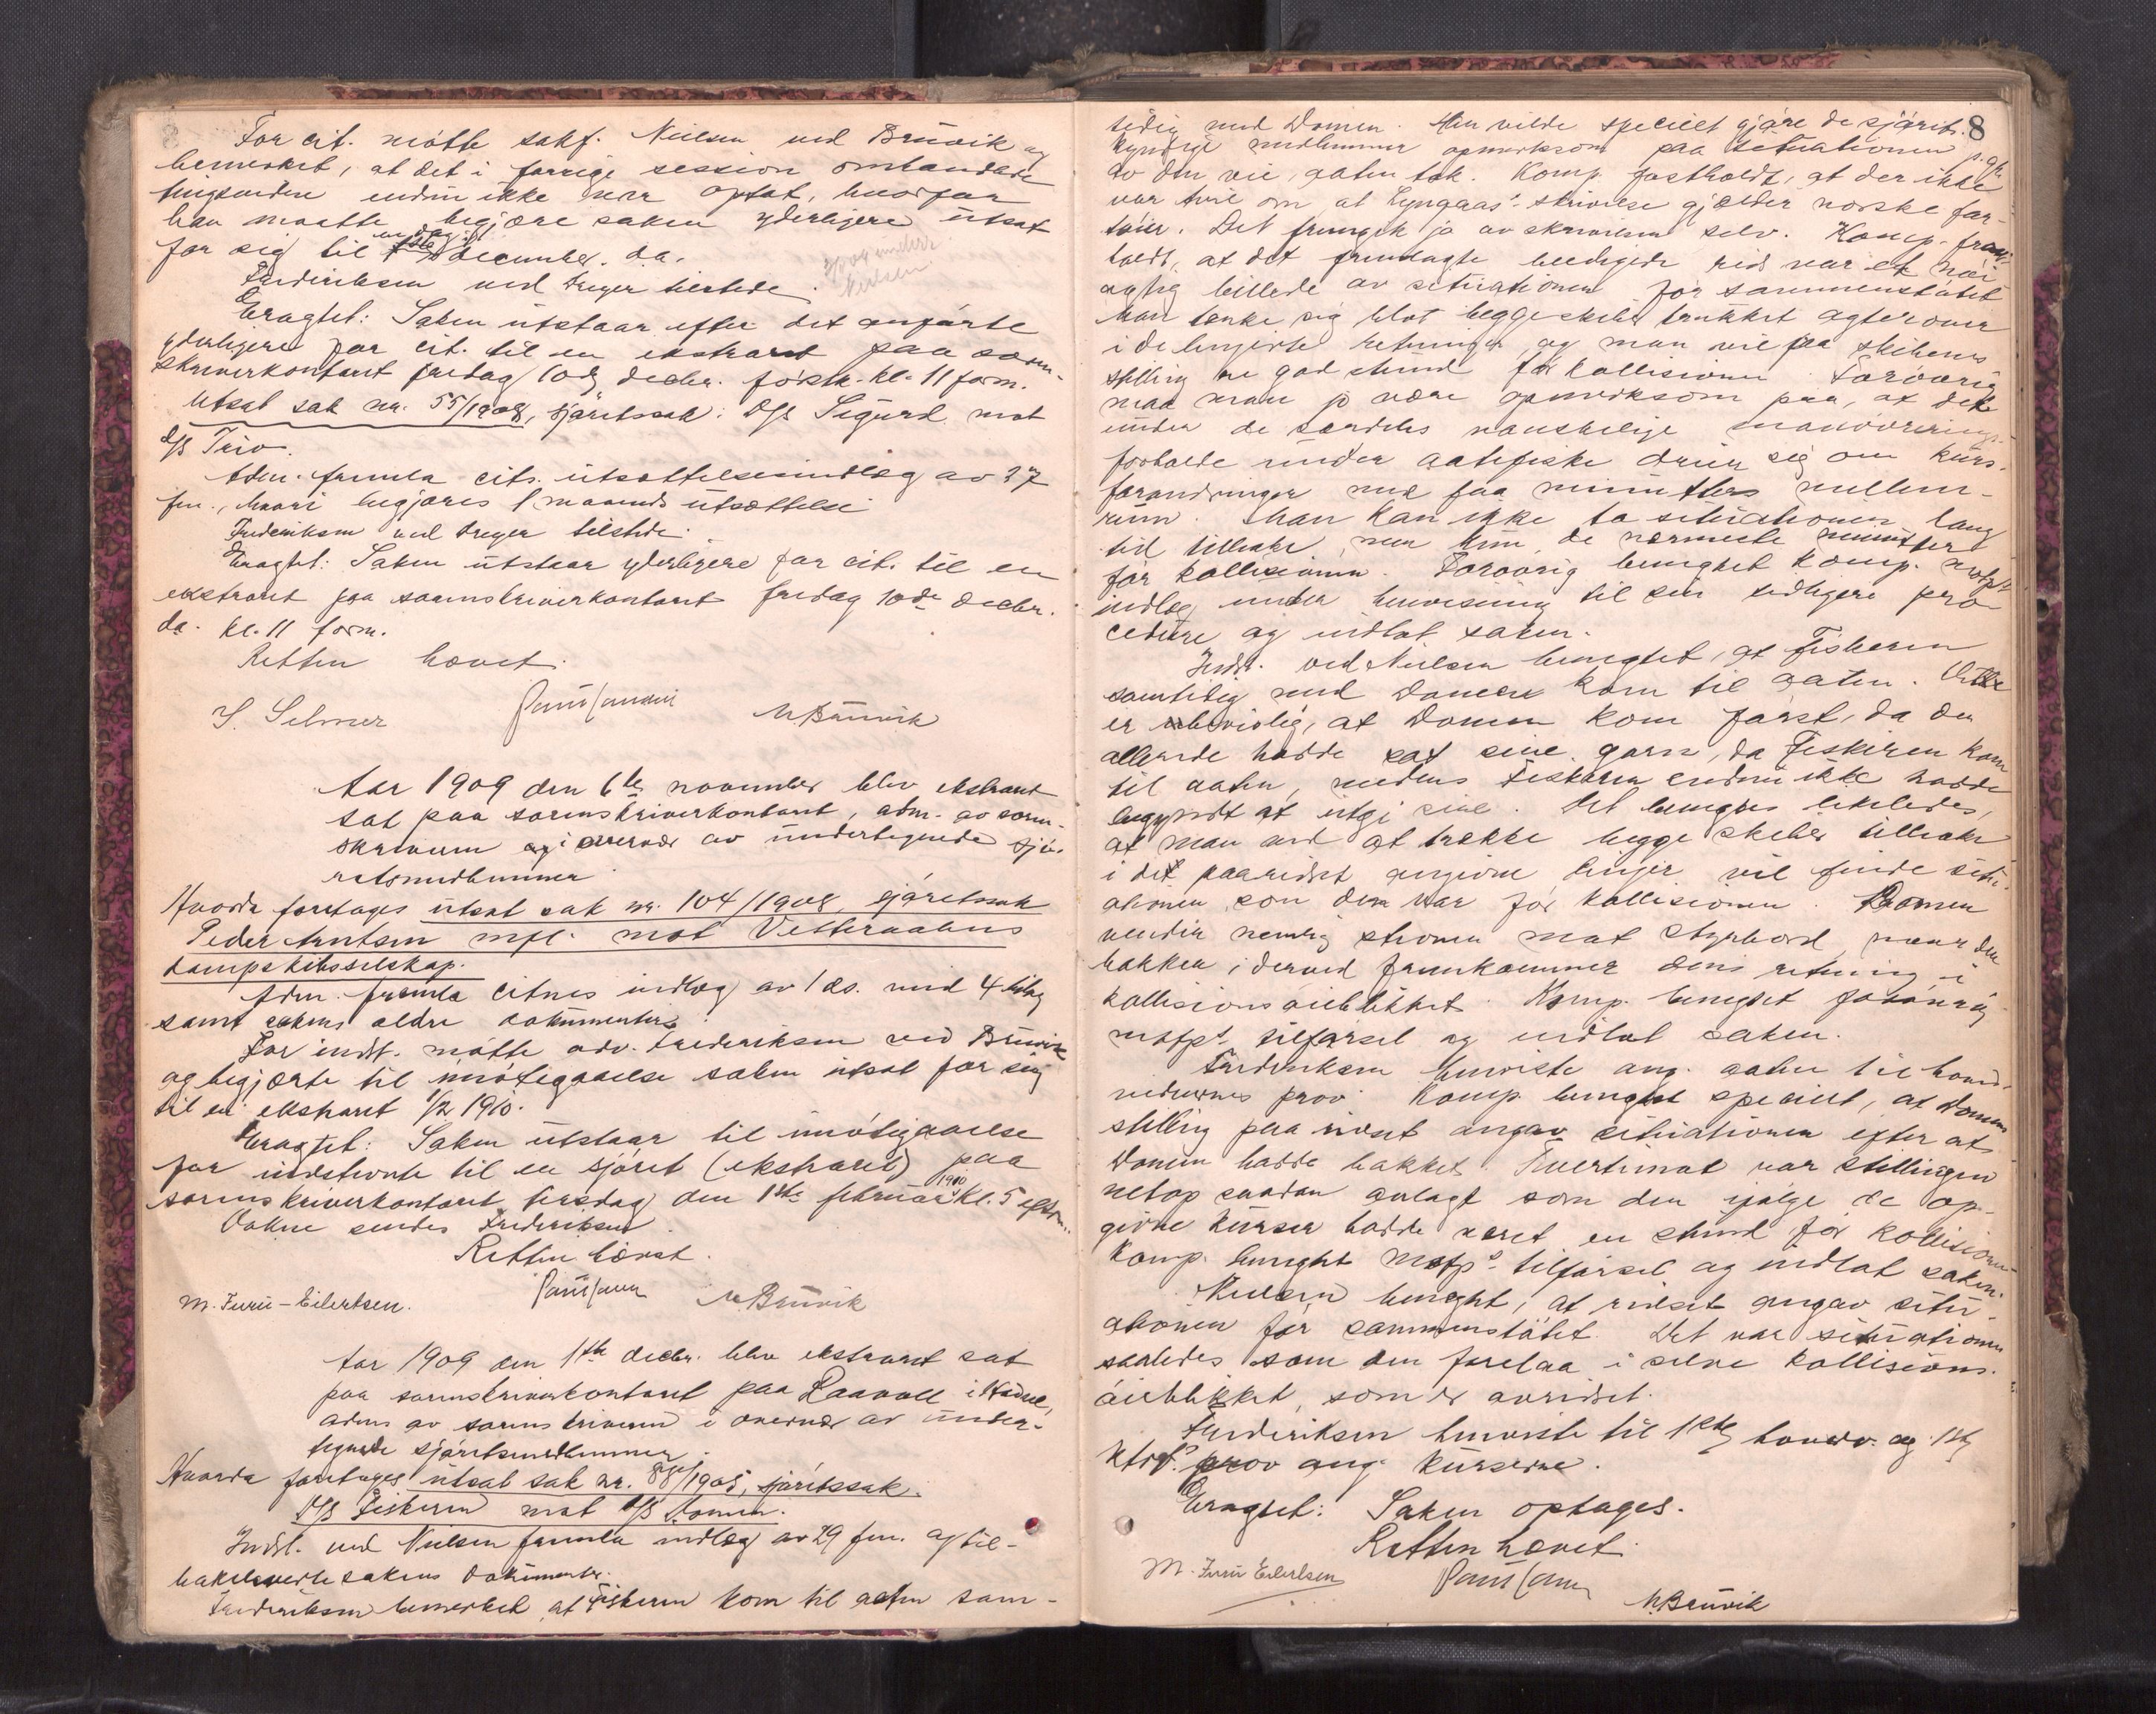 For cit. møtte sakf. Nielsen ved Brüvik og
bemerket, at det i forrige session omhandlede
tingsvidne endnu ikke var optat, hvorfor
han maatte begjære saken yderligere utsat
for sig til en dag i december. d.a.
Frederiksen ved Dreyer tilstede.
Eragtet: Saken utstaar efter det anførte
yderligere for cit. til en ekstraret paa soren-
skriverkontoret fredag 10de decbr. førstk. kl. 11 form.
Utsat sak nr. 55/1908, sjøretssak: D/S Sigurd mot
d/s Trio.
Adm. fremla cits. utsættelsesindlæg av 27
fm., hvori begjæres 1 maaneds utsættelse
Frederiksen ved Dreyer tilstede.
Eragtet: Saken utstaar yderligere for cit. til en
ekstraret paa sorenskriverkontoret fredag 10de decbr.
d.a. kl. 11 form.
Retten hævet.
S. Selmer M Brüvik
Aar 1909 den 6te november blev ekstraret
sat paa sorenskriverkontoret, adm. av soren-
skriveren og i overvær av undertegnede sjø-
retsmedlemmer
Hvorda foretages utsat sak nr. 104/1908, sjøretssak
Peder Arntsen mfl. mot Vesteraalens
Dampskibsselskap.
Adm. fremla citnes indlæg av 1 ds. med 4 bilag
samt sakens ældre dokumenter.
For indst. møtte adv. Frederiksen ved Brüvik
og begjærte til imøtegaaelse saken utsat for sig
til en ekstraret 1/2 1910.
Eragtet: Saken utstaar til imøtegaaelse
for indstevnte til en sjøret (ekstraret) paa
sorenskriverkontoret tirsdag den 1ste februar 1910 kl. 5 efterm.
Dokne sendes Frederiksen.
Retten hævet.
M. Furu-Eilertsen. M Brüvik
Aar 1909 den 1ste decbr. blev ekstraret sat
paa sorenskriverkontoret paa Raavoll i Hadsel,
adm. av sorenskriveren i overvær av under-
tegnede sjøretsmedlemmer.
Hvorda foretages utsat sak nr. 88/1908, sjøretssak.
D/S Fiskeren mot d/s Domen.
Indst. ved Nielsen fremla indlæg av 29 fm. og til-
bakeleverte sakens dokumenter.
Frederiksen bemerket at Fiskeren kom til aaten sam-
8
tidig med Domen. Han vilde specielt gjøre de sjørets-
kyndige medlemmer opmerksom paa situationen p.gr.
av den vei, aaten tok. Komp. fastholdt, at der ikke
var tvil om at Lyngaas' skrivelse gjælder norske far-
tøier. Det fremgik jo av skrivelsen selv. Komp. frem-
holdt, at det fremlagte beedigede rids var et nøi-
agtig billede av situationen før sammenstøtet
Man tænke sig blot begge skibe trukket agterover
i de linjerte retninger, og man vil faa skibenes
stilling en god stund før kollisionen. Forøvrig
maa man jo være opmerksom paa, at det
under de særdeles vanskelige manøvrerings-
forholde under aatefiske dreier sig om kurs-
forandringer med faa minutters mellem-
rum. Man kan ikke ta situationen lang
tid tilbake, men kun de nærmeste minutter
før kollisionen. Forøvrig benegtet komp. motp.s
indlæg under henvisning til sin tidligere pro-
cedure og indlot saken.
Indst. ved Nielsen benegtet, at Fiskeren
samtidig med Domen kom til aaten. Dette
er ubevislig, at Domen kom først, da den
allerede hadde sat sine garn, da Fiskeren kom
til aaten, medens Fiskeren endnu ikke hadde
begyndt at utgi sine. Det benegtes likeledes,
at man ved at trække begge skibe tilbake
i det paaridset angivne linjer vil finde situ-
ationen som den var før kollisionen. Domen
vender nemlig stevnen mot styrbord, naar den
bakker i derved fremkommer dens retning i
kollisionsøieblikket. Komp. benegtet forøvrig
motps. tilførsel og indlot saken.
Frederiksen henviste ang. aaten til hoved-
vidnernes prov. Komp. benegtet specielt, at Domens
stilling paa ridset angav situationen efter at
Domen hadde bakket. Tvertimot var stillingen
netop saadan anlagt som den ifølge de op-
givne kurser hadde været en stund før kollisionen
Komp. benegtet motps. tilførsel og indlot saken.
Nielsen benegtet, at ridset angav situ-
ationen før sammenstøtet. Det var situationen
saaledes som den forelaa i selve kollisions-
øieblikket, som er avridset.
Frederiksen henviste til 1ste hovedv. og 1ste
ktrv.s prov ang. kurserne.
Eragtet: Saken optages.
Retten hævet.
M. Furu Eilertsen
M. Brüvik